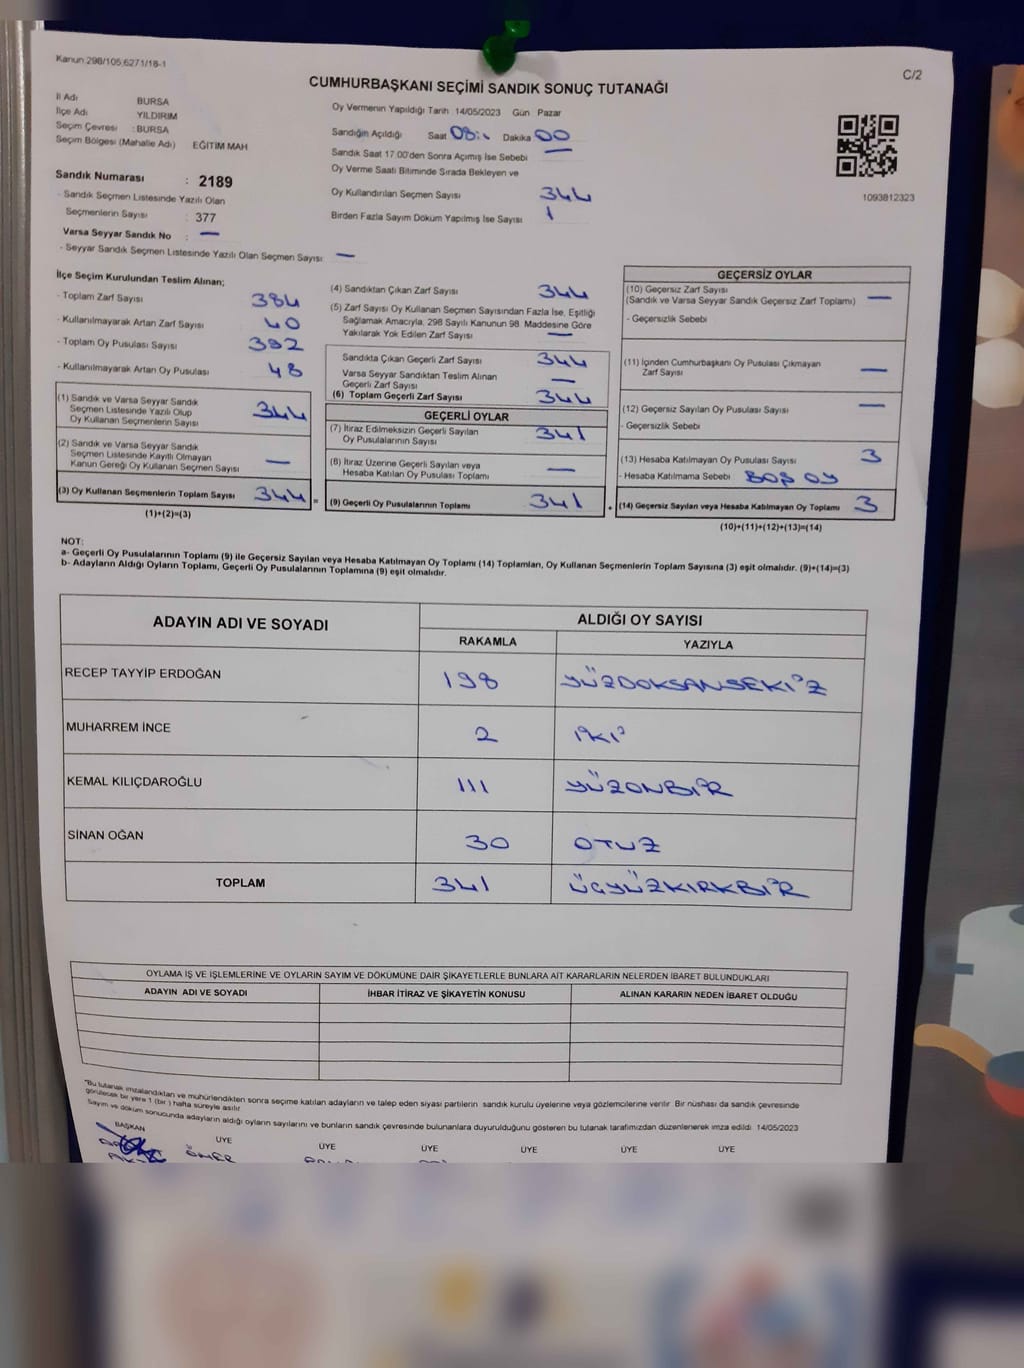 Kanun 298/105,6271/18-1
C/2
CUMHURBAŞKANI SEÇİMİ SANDIK SONUÇ TUTANAĞI
İl Adı BURSA
İlçe Adı YILDIRIM
Seçim Çevresi : BURSA
Seçim Bölgesi (Mahalle Adı) EĞİTİM MAH
Sandık Numarası : 2189
- Sandık Seçmen Listesinde Yazılı Olan
Seçmenlerin Sayısı : 377
Varsa Seyyar Sandık No : —
- Seyyar Sandık Seçmen Listesinde Yazılı Olan Seçmen Sayısı —
Oy Vermenin Yapıldığı Tarih 14/05/2023 Gün Pazar
Sandığın Açıldığı Saat 08: Dakika 00
Sandık Saat 17.00'den Sonra Açımış İse Sebebi —
Oy Verme Saati Bitiminde Sırada Bekleyen ve
Oy Kullandırılan Seçmen Sayısı 344
Birden Fazla Sayım Döküm Yapılmış İse Sayısı 1
1093812323
İlçe Seçim Kurulundan Teslim Alınan;
- Toplam Zarf Sayısı 384
- Kullanılmayarak Artan Zarf Sayısı 40
- Toplam Oy Pusulası Sayısı 392
- Kullanılmayarak Artan Oy Pusulası 48
(1) Sandık ve Varsa Seyyar Sandık
Seçmen Listesinde Yazılı Olup
Oy Kullanan Seçmenlerin Sayısı 344
(2) Sandık ve Varsa Seyyar Sandık
Seçmen Listesinde Kayıtlı Olmayan
Kanun Gereği Oy Kullanan Seçmen Sayısı —
(3) Oy Kullanan Seçmenlerin Toplam Sayısı 344 =
(1)+(2)=(3)
(4) Sandıktan Çıkan Zarf Sayısı 344
(5) Zarf Sayısı Oy Kullanan Seçmen Sayısından Fazla İse, Eşitliği
Sağlamak Amacıyla, 298 Sayılı Kanunun 98. Maddesine Göre
Yakılarak Yok Edilen Zarf Sayısı —
Sandıkta Çıkan Geçerli Zarf Sayısı 344
Varsa Seyyar Sandıktan Teslim Alınan
Geçerli Zarf Sayısı —
(6) Toplam Geçerli Zarf Sayısı 344
GEÇERLİ OYLAR
(7) İtiraz Edilmeksizin Geçerli Sayılan
Oy Pusulalarının Sayısı 341
(8) İtiraz Üzerine Geçerli Sayılan veya
Hesaba Katılan Oy Pusulası Toplamı —
(9) Geçerli Oy Pusulalarının Toplamı 341 +
GEÇERSİZ OYLAR
(10) Geçersiz Zarf Sayısı
(Sandık ve Varsa Seyyar Sandık Geçersiz Zarf Toplamı) —
- Geçersizlik Sebebi
(11) İçinden Cumhurbaşkanı Oy Pusulası Çıkmayan
Zarf Sayısı —
(12) Geçersiz Sayılan Oy Pusulası Sayısı —
- Geçersizlik Sebebi
(13) Hesaba Katılmayan Oy Pusulası Sayısı 3
- Hesaba Katılmama Sebebi BOŞ OY
(14) Geçersiz Sayılan veya Hesaba Katılmayan Oy Toplamı 3
(10)+(11)+(12)+(13)=(14)
NOT:
a- Geçerli Oy Pusulalarının Toplamı (9) ile Geçersiz Sayılan veya Hesaba Katılmayan Oy Toplamı (14) Toplamları, Oy Kullanan Seçmenlerin Toplam Sayısına (3) eşit olmalıdır. (9)+(14)=(3)
b- Adayların Aldığı Oyların Toplamı, Geçerli Oy Pusulalarının Toplamına (9) eşit olmalıdır.
ADAYIN ADI VE SOYADI
ALDIĞI OY SAYISI
RAKAMLA YAZIYLA
RECEP TAYYİP ERDOĞAN 198 YÜZDOKSANSEKİZ
MUHARREM İNCE 2 İKİ
KEMAL KILIÇDAROĞLU 111 YÜZONBİR
SİNAN OĞAN 30 OTUZ
TOPLAM 341 ÜÇYÜZKIRKBİR
OYLAMA İŞ VE İŞLEMLERİNE VE OYLARIN SAYIM VE DÖKÜMÜNE DAİR ŞİKAYETLERLE BUNLARA AİT KARARLARIN NELERDEN İBARET BULUNDUKLARI
ADAYIN ADI VE SOYADI İHBAR İTİRAZ VE ŞİKAYETİN KONUSU ALINAN KARARIN NEDEN İBARET OLDUĞU
"Bu tutanak imzalandıktan ve mühürlendikten sonra seçime katılan adayların ve talep eden siyasi partilerin sandık kurulu üyelerine veya gözlemcilerine verilir. Bir nüshası da sandık çevresinde
görülecek bir yere 1 (bir) hafta süreyle asılır.
Sayım ve döküm sonucunda adayların aldığı oyların sayılarını ve bunların sandık çevresinde bulunanlara duyurulduğunu gösteren bu tutanak tarafımızdan düzenlenerek imza edildi 14/05/2023
BAŞKAN ÜYE ÜYE ÜYE ÜYE ÜYE ÜYE
ÖMER